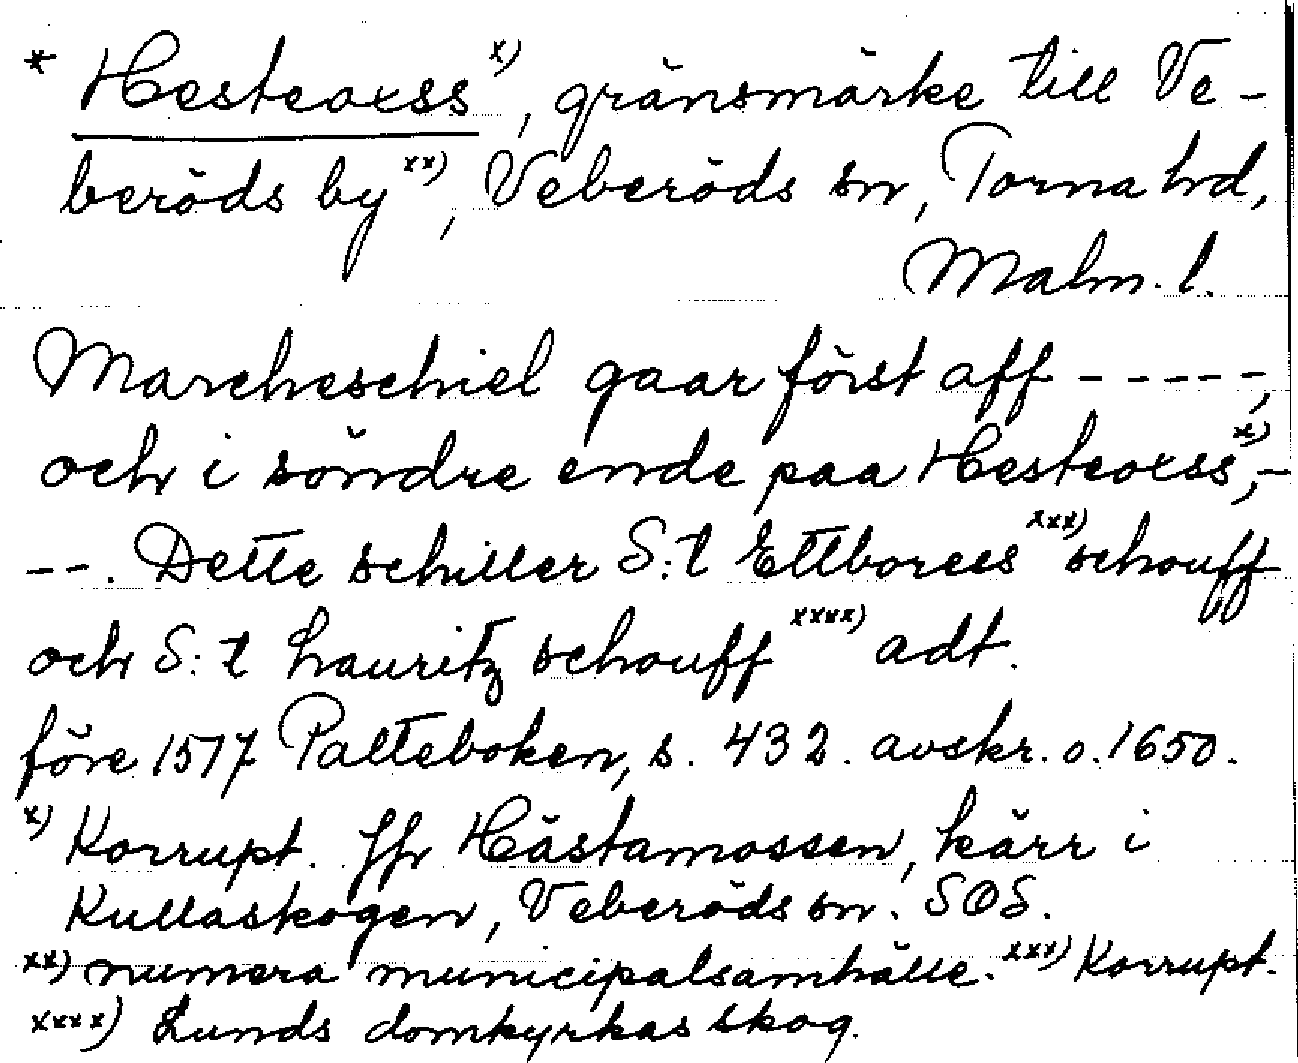 * Hesteoxss x), gränsmärke till Ve-
beröds by xx), Veberöds sn, Torna hd,
Malm. l.
Marcheschiel gaar först aff -----,
och i söndre ende paa Hesteoxss x),-
--. Dette schiller S:t Ettborees xxx) schouff
och S:t Lauritz schouff xxxx) adt.
före 1517 Palteboken, s. 432. avskr. o. 1650.
x) Korrupt. Jfr Hästamossen, kärr i
Kullaskogen, Veberöds sn. SOS.
xx) numera municipalsamhälle. xxx) Korrupt.
xxxx) Lunds domkyrkas skog.